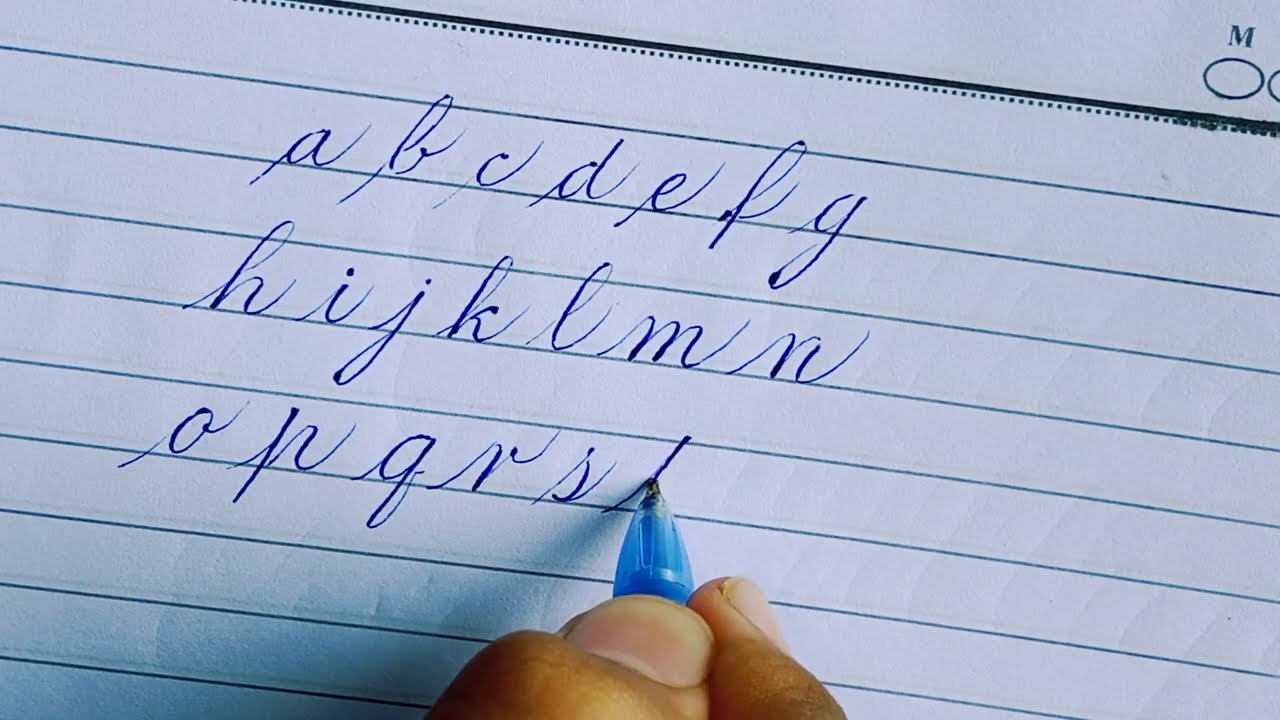 M
a b c d e f g
h i j k l m n
o p q r s